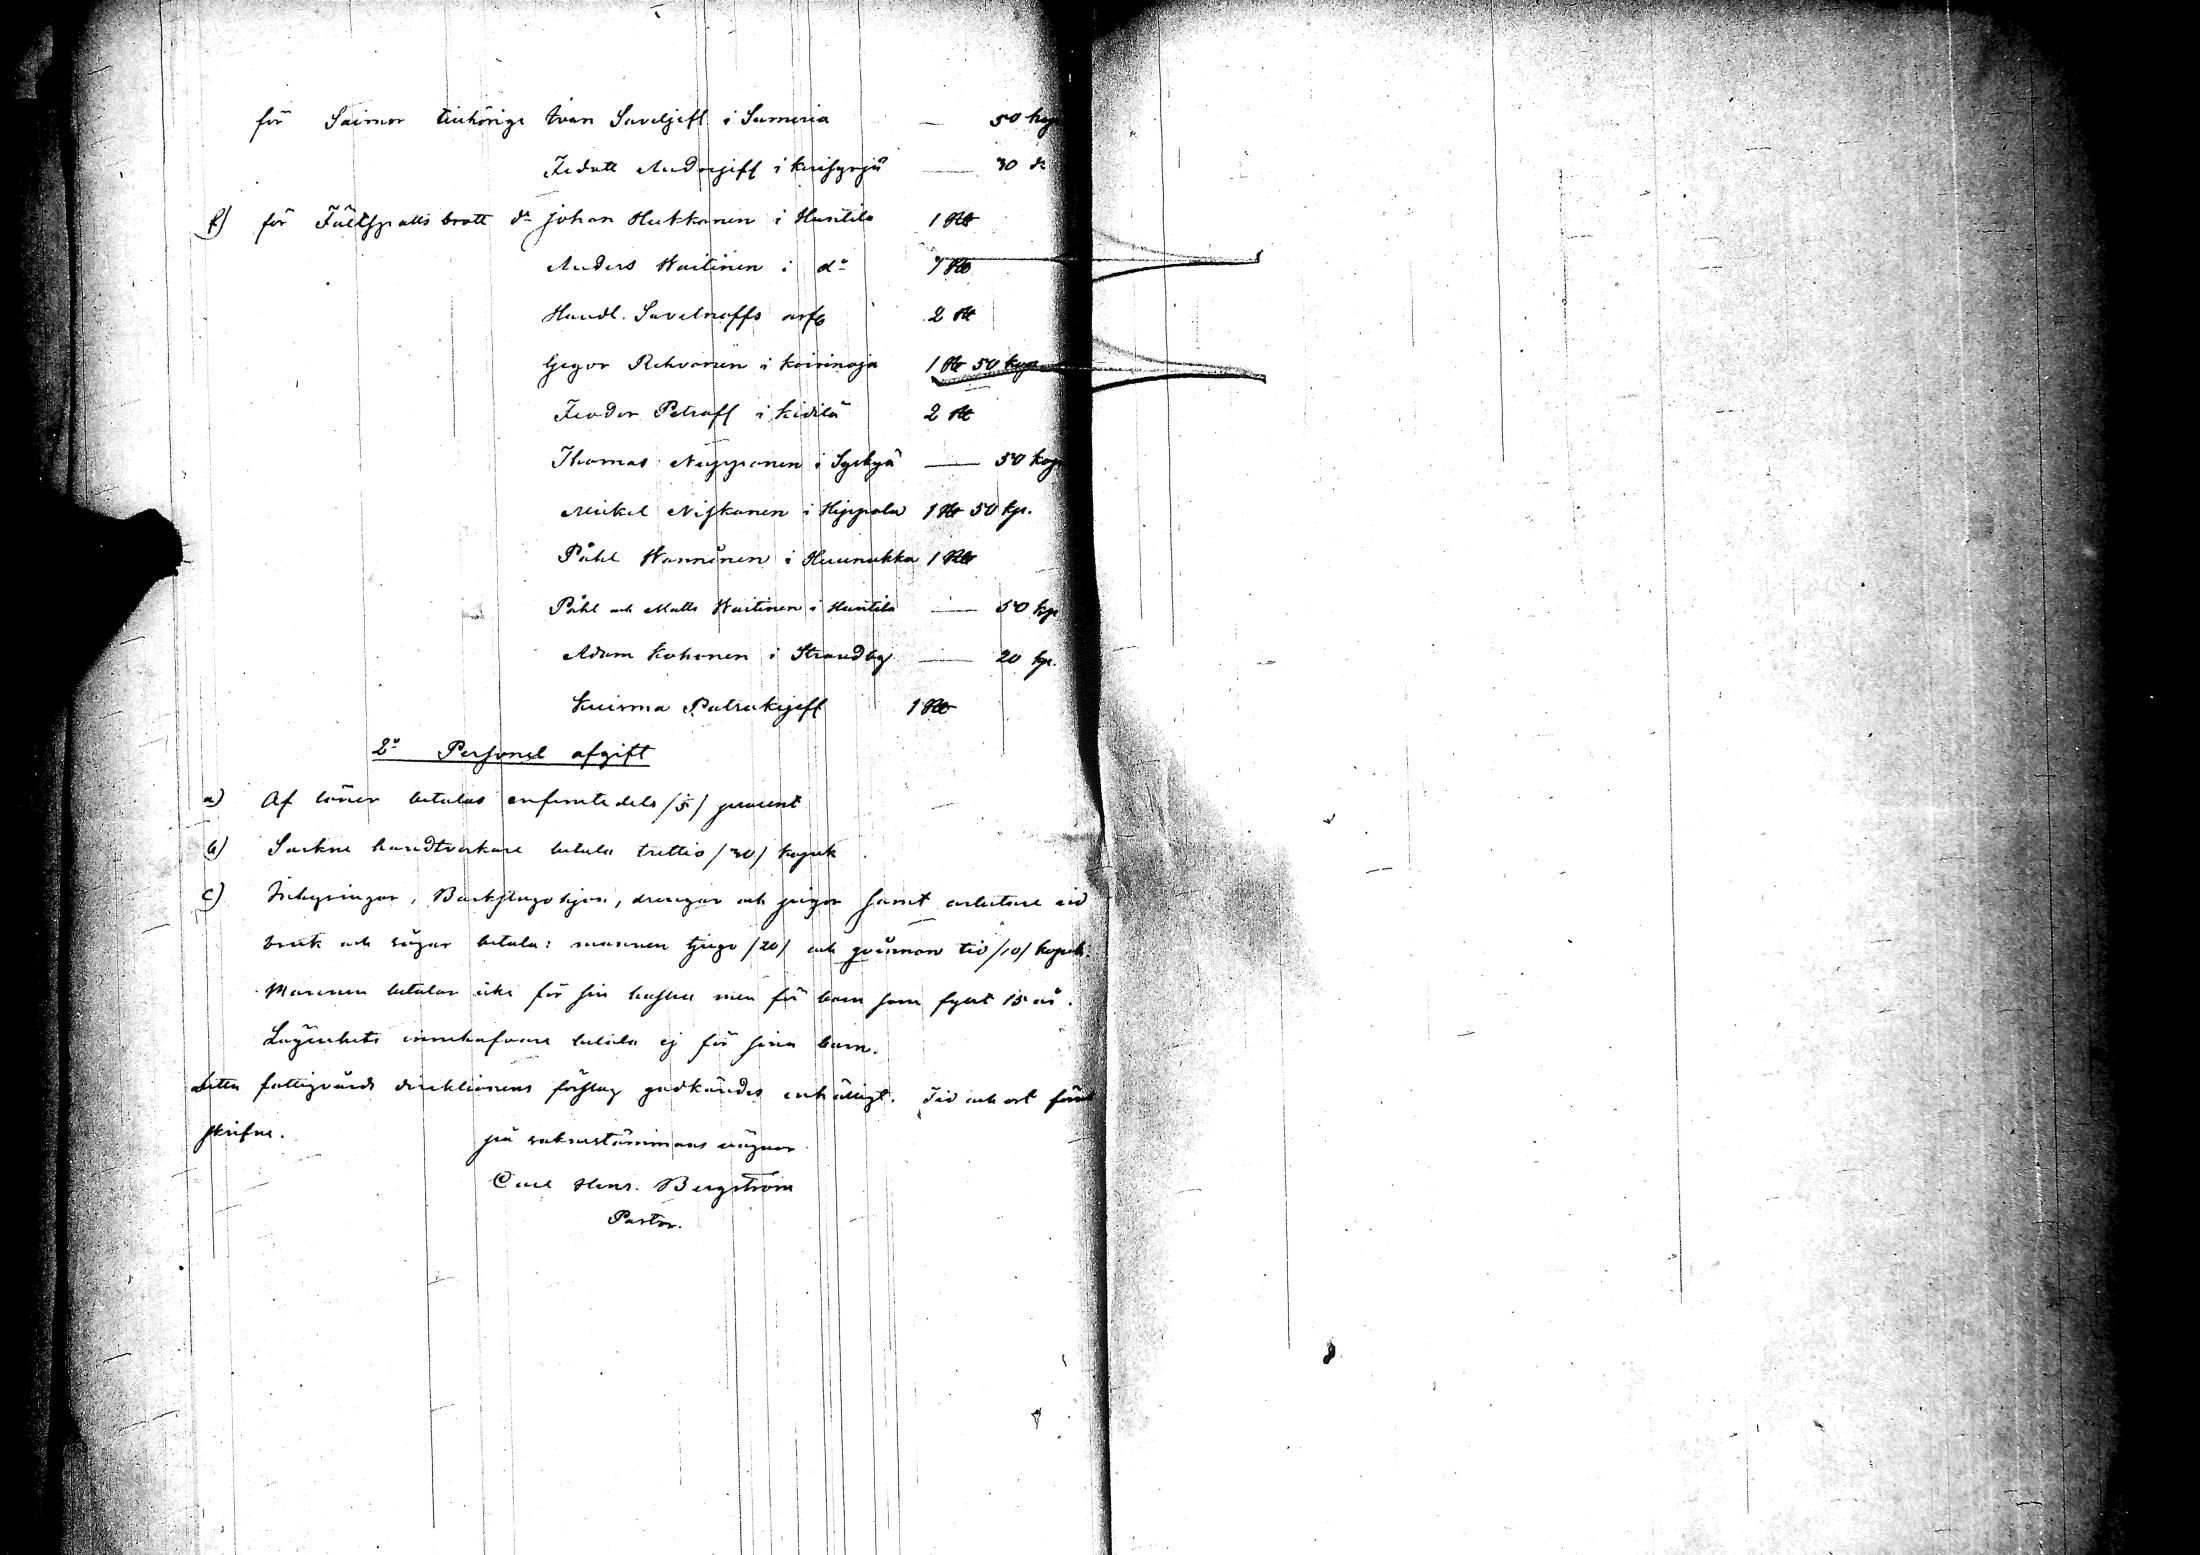 för Saimor tillhörige Ivan Saveljeff i Sumeria — 50 kop
Fedott Andrejeff i — 30 d:
f) för Fältspatts brott d:o Johan Hukkanen i Huntila 1 Rb
Anders Waitinen i d:o 7 Rb
Handl. arfv 2 Rb
Gegor Rehvanen i Koirinoja 1 Rb 50 kop
Feodor Petroff i Kidilä 2 Rb
Thomas Nupponen i Syskyä — 50 kop
Mickel Niskanen i Hippola 1 Rb 50 kp.
Påhl Wänninen i Huunukka 1 Rb
Påhl och Matts Waitinen i Huntila — 50 kp
Adam Kohonen i Strandby — 20 kp.
Kuisma Patrakejeff 1 Rb
2:o Personel afgift
a) Af löner betalas /5/ procent
b) Sockne handtverkare betala trettio /30/ kopek
c) Inhysingar, Backstugohjon, drengar och pigor samt arbetare vid
bruk och sågar betala: mannen tjugo /20/ och qvinnan tio /10/ kopek.
Mannen betalar icke för sin hustru men för barn som fyllt 15 år.
Lägenhets innehafvare betala ej för sina barn.
Detta fattigvårds direktionens förslag godkändes enhälligt. Tid och ort förut
skrifne.
på sockenstämmans vägnar
Carl Henr. Bergström
Pastor.